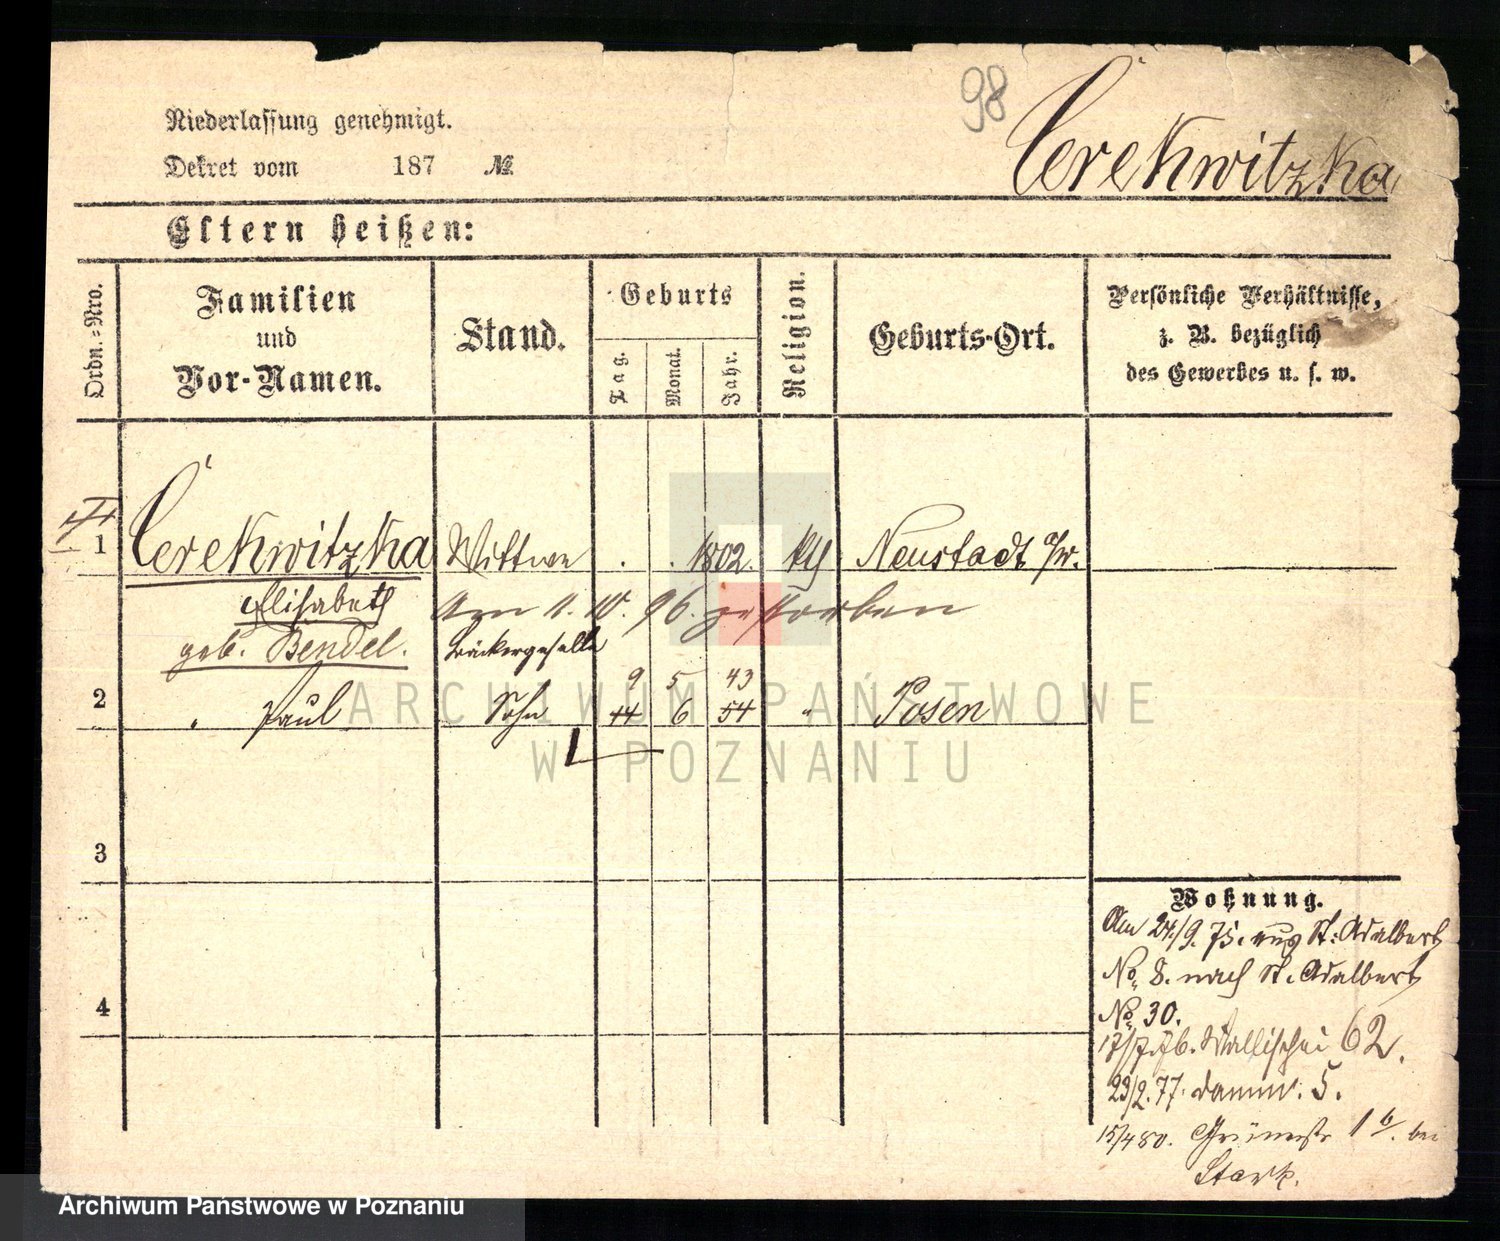 98
Cerekwitzka
Niederlassung genehmigt.
Dekret vom 187 №
Eltern heißen:
Ordn.=Nro.
Familien
und
Vor-Namen.
Stand.
Geburts
Tag.
Monat.
Jahr.
Religion.
Geburts-Ort.
Persönliche Verhältnisse,
z. B. bezüglich
des Gewerbes u. s. w.
1 Cerekwitzka Wittwe . . 1802. kth Neustadt a/W.
Elisabeth Am 11. 10. 96. gestorben
geb. Bendel. Bäckergeselle
9 5 43
2 " Paul Sohn 14 6 54 " Posen
3
4
Wohnung.
Am 24./9. 75. aus St. Adalbert
No. 8. nach St. Adalbert
No. 30.
17/7.76. Wallischei 62.
23/2.77. Damm. 5.
15/4 80. Grünestr 1 b. bei
Stark.
ARCHIWUM PAŃSTWOWE
W POZNANIU
Archiwum Państwowe w Poznaniu